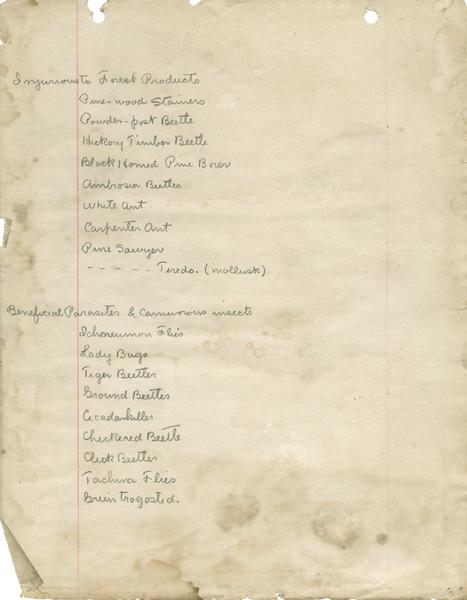 Injurious to Forest Products
Pine-wood Stainers
Powder-post Beetle
Hickory Timber Beetle
Black Horned Pine Borer
Ambrosia Beetles
White Ant
Carpenter Ant
Pine Sawyer
- - - - - Teredo. (mollusk)
Beneficial Parasites & Carnivorous insects
Ichneumon Flies
Lady Bugs
Tiger Beetles
Ground Beetles
Cicada killer
Checkered Beetle
Click Beetles
Tachina Flies
Green trogostid.